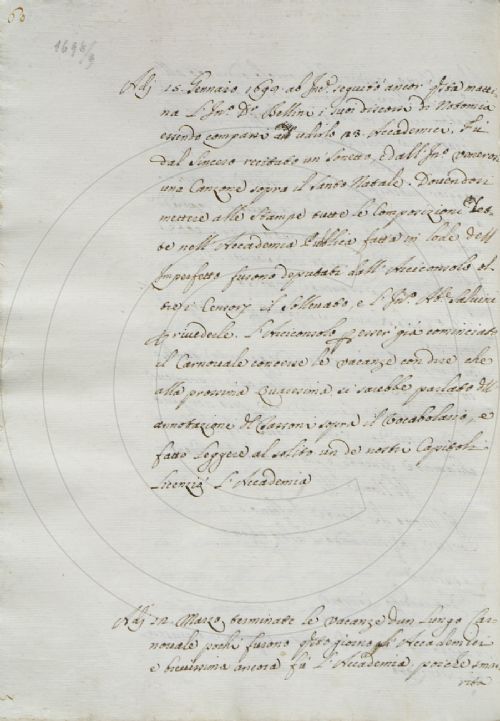 60
1698/9
Adj 15. Gennaio 1699. ab Inc.e seguitò ancor q.sta matti
na l'Inn.o D.r Bellini i suoi discorsi di Notomia
essendo comparsi ad udirlo 23. Accademici. Fù
dal Sincero recitato un Sonetto, e dall'Inn.o
una Canzone sopra il Santo Natale. Dovendosi
mettere alle stampe tutte le Composizioni let
te nell'Accademia Pubblica fatta in lode dell'
Imperfetto furono deputati dall'Arciconsolo ol
tre i Censori il Sollevato, e l'Inn.o Ab. Salvini
p rivederle. L'Arciconsolo p esser già cominciato
il Carnovale concesse le vacanze con dire che
alla prossima Quaresima si sarebbe parlato dll
annotazioni dl sopra il Vocabolario, e
fatto leggere al solito un de nostri Capitoli
licenziò l'Accademia
Adj 12. Marzo terminate le vacanze d'un lungo Car-
novale pochi furono q.sto giorno gli Accademici
e brevissima ancora fù l'Accademia, poiche smar
rita